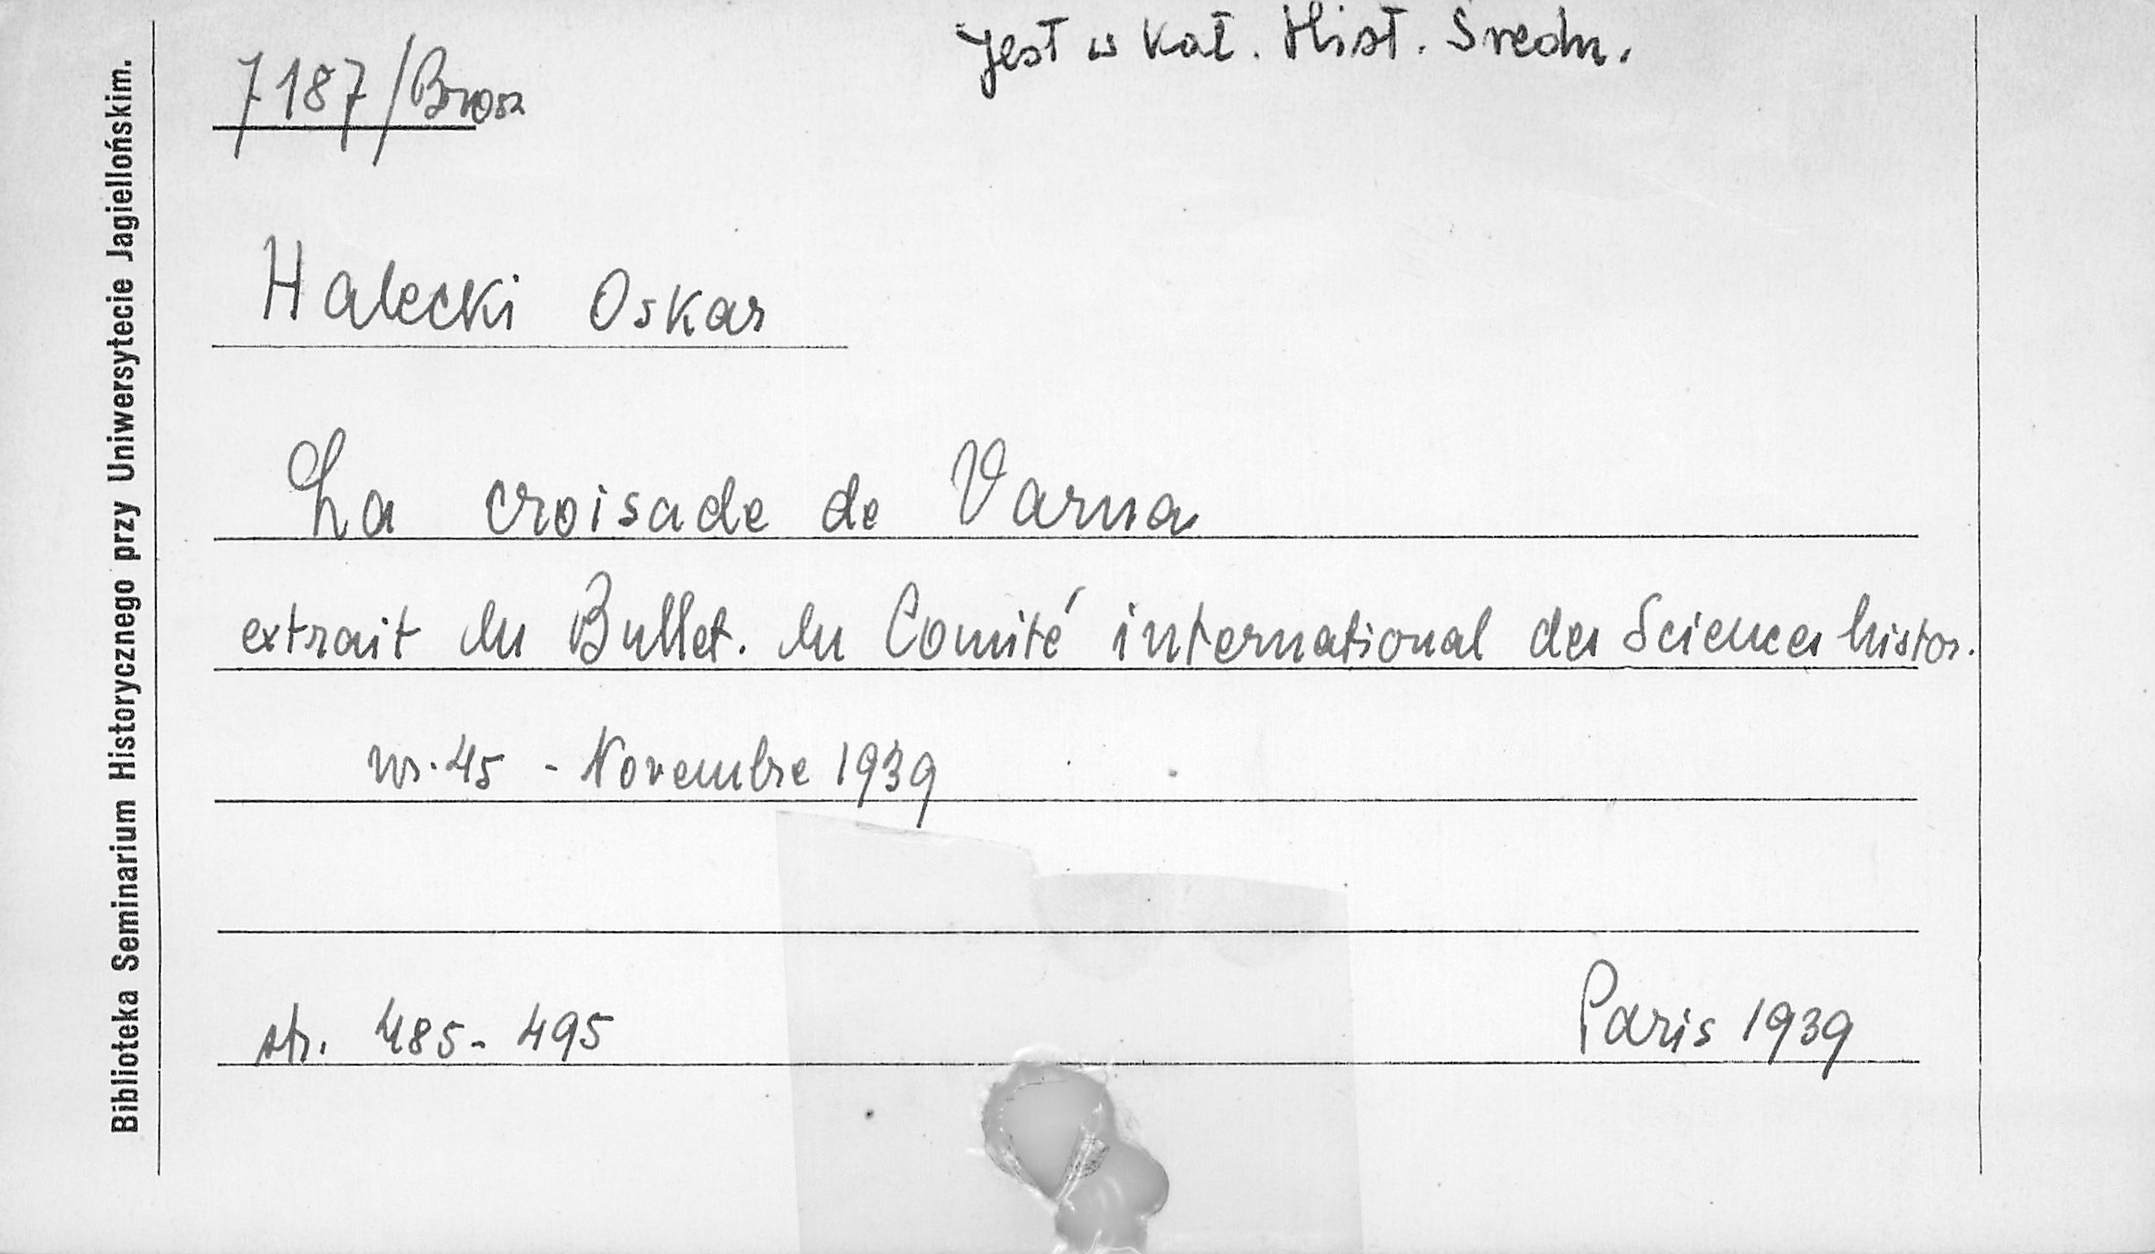 Jest w Kat. Hist. Średn.
7187/Brosz
Halecki Oskar
La croisade de Varna
extrait du Bullet. du Comité international des Sciences histor.
nr. 45 - Novembre 1939
str. 485-495 Paris 1939
Biblioteka Seminarium Historycznego przy Uniwersytecie Jagiellońskim.